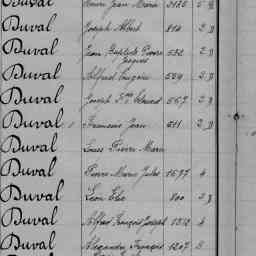 Duval Jean Marie 3125 5 B
Duval Joseph Albert 810 2 D
Duval Jean Baptiste Pierre 532 2 D
Jacques
Duval Alfred Eugène 559 2 D
Duval Joseph Edouard 567 2 D
Duval François Jean 511 2 D
Duval Louis Pierre Marie
Duval Pierre Marie Jules 1677 4
Duval Léon Elie 800 2 D
Duval Alfred François Joseph 1312 4
Duval Alexandre François 1207 3